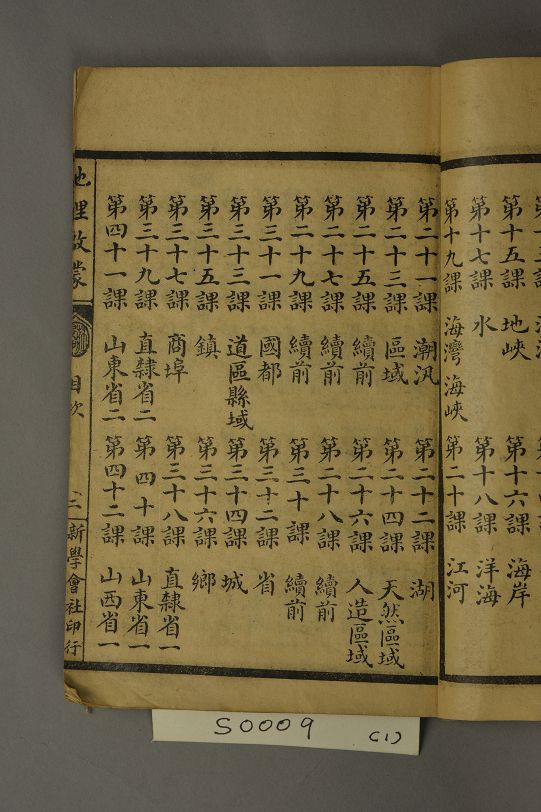 第十五課 地峽 第十六課 海岸
第十七課 水 第十八課 洋海
第十九課 海灣 海峽 第二十課 江河
第二十一課 潮汎 第二十二課 湖
第二十三課 區域 第二十四課 天然區域
第二十五課 續前 第二十六課 人造區域
第二十七課 續前 第二十八課 續前
第二十九課 續前 第三十課 續前
第三十一課 國都 第三十二課 省
第三十三課 道區縣域 第三十四課 城
第三十五課 鎮 第三十六課 鄉
第三十七課 商埠 第三十八課 直隸省一
第三十九課 直隸省二 第四十課 山東省一
第四十一課 山東省二 第四十二課 山西省一
地理啟蒙 目次 新學會社印行
S0009 (1)